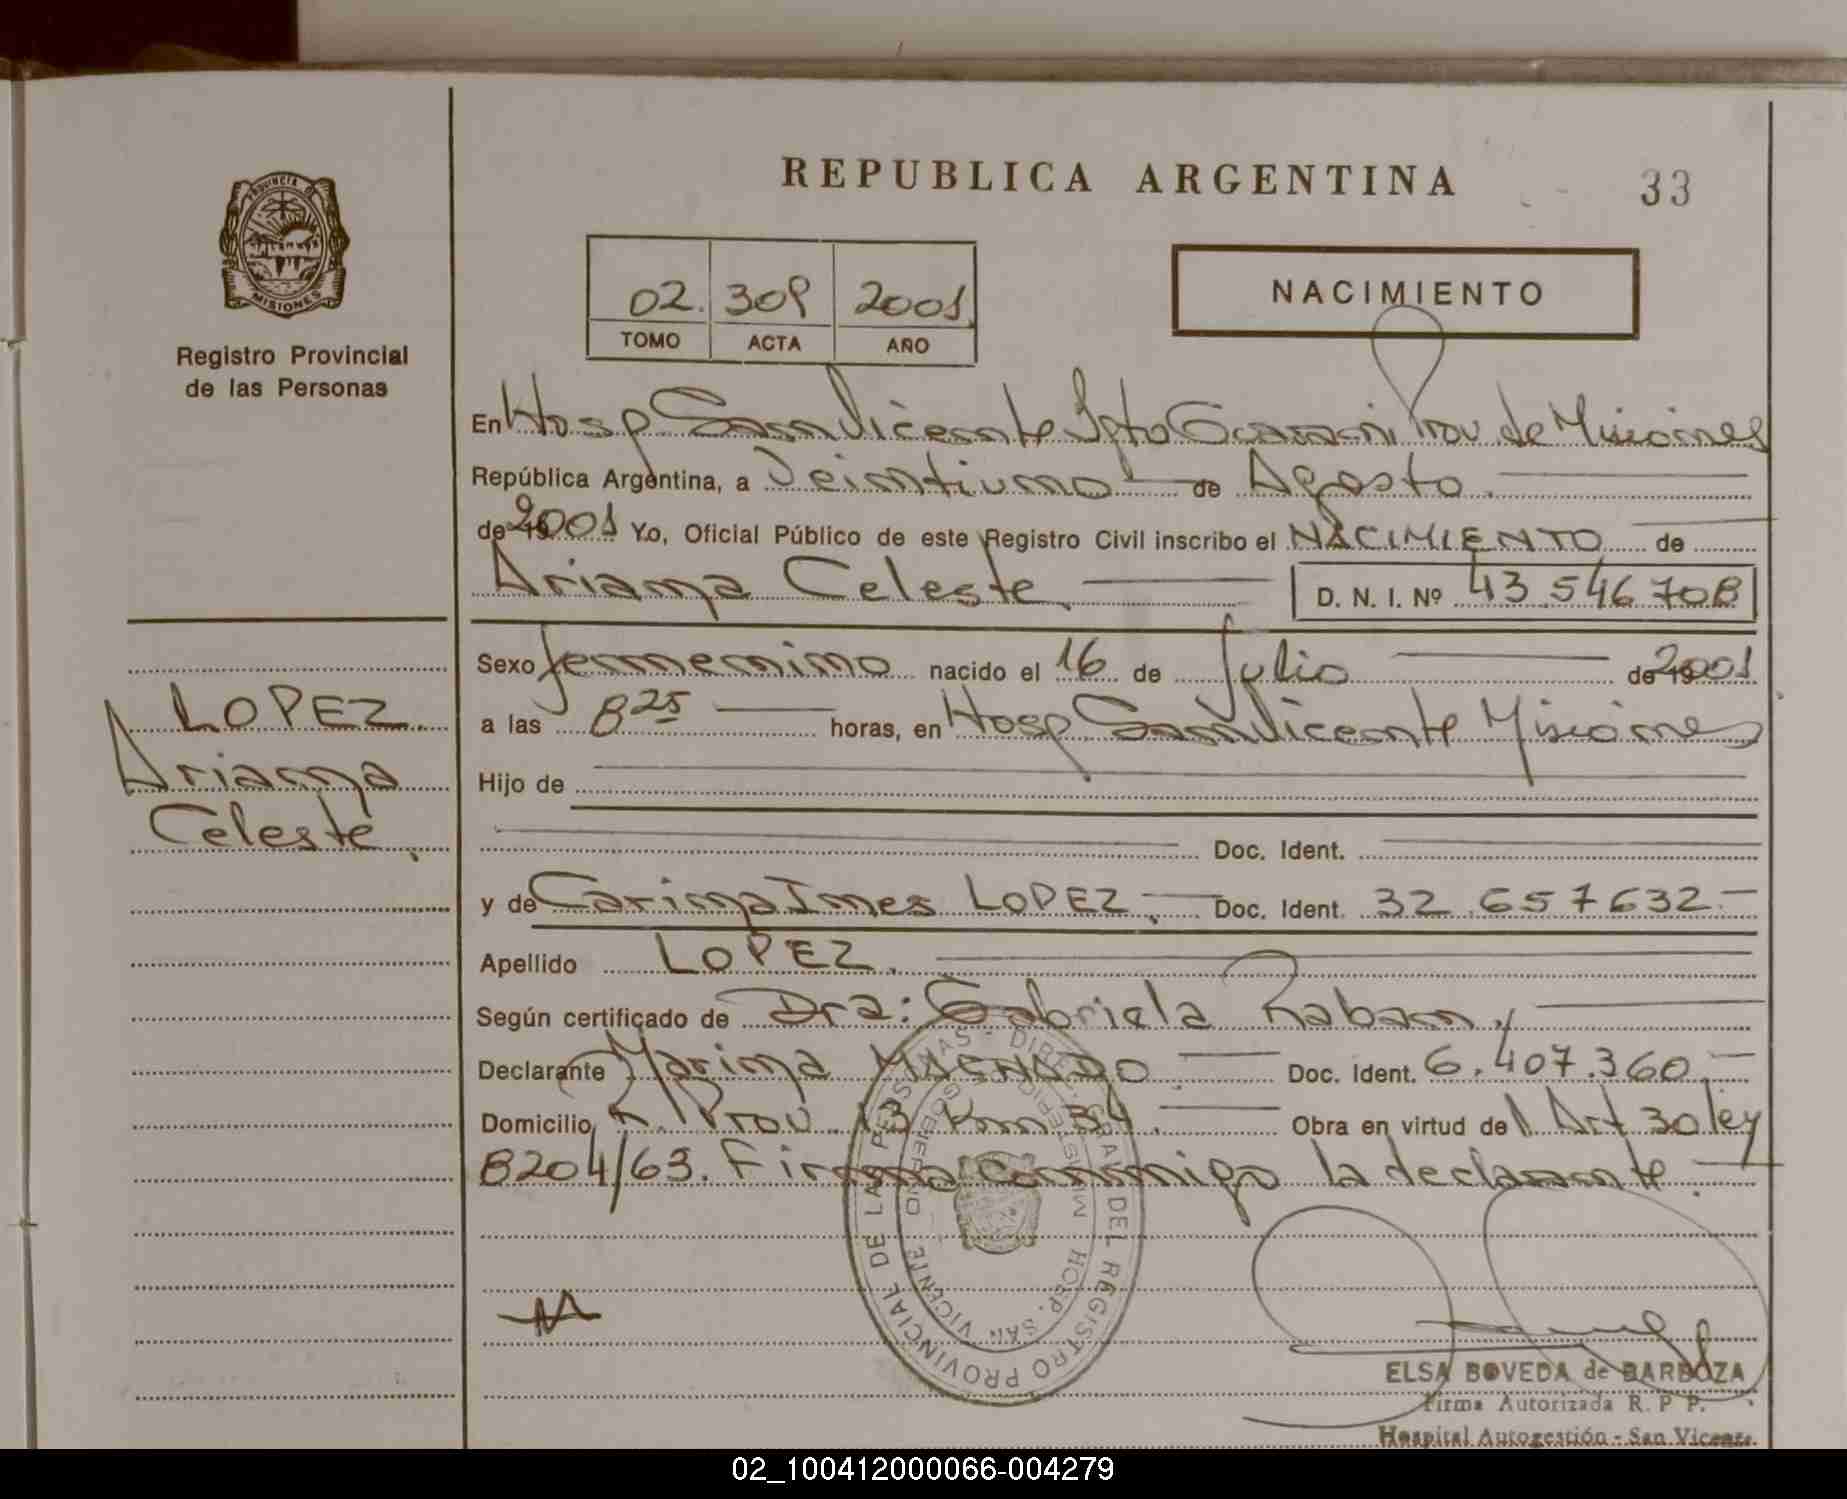 REPUBLICA ARGENTINA
33
PROVINCIA DE
MISIONES
Registro Provincial
de las Personas
02. 309 2001
TOMO ACTA AÑO
NACIMIENTO
En Hosp San Vicente Dpto Guarani Prov de Misiones
República Argentina, a Veintiuno de Agosto
de 19 2001 Yo, Oficial Público de este Registro Civil inscribo el NACIMIENTO de
Ariana Celeste. D. N. I. Nº 43.546.708
Sexo femenino nacido el 16 de Julio de 19 2001
a las 8 25 horas, en Hosp San Vicente Misiones
Hijo de
Doc. Ident.
y de Carina Ines LOPEZ. Doc. Ident. 32.657.632
Apellido LOPEZ.
Según certificado de Dra: Gabriela Raban,
Declarante Marina MACHADO Doc. Ident. 6.407.360.
Domicilio R. Prov. 13 Km 34. Obra en virtud del Art 30 ley
8204/63. Firma conmigo la declarante.
LOPEZ.
Ariana
Celeste.
DIREC. GRAL DEL REGISTRO PROVINCIAL DE LAS PERSONAS
MINISTERIO GOBIERNO
HOSP. SAN VICENTE
ELSA BOVEDA de BARBOZA
Firma Autorizada R. P P.
Hospital Autogestión - San Vicente.
02_100412000066-004279